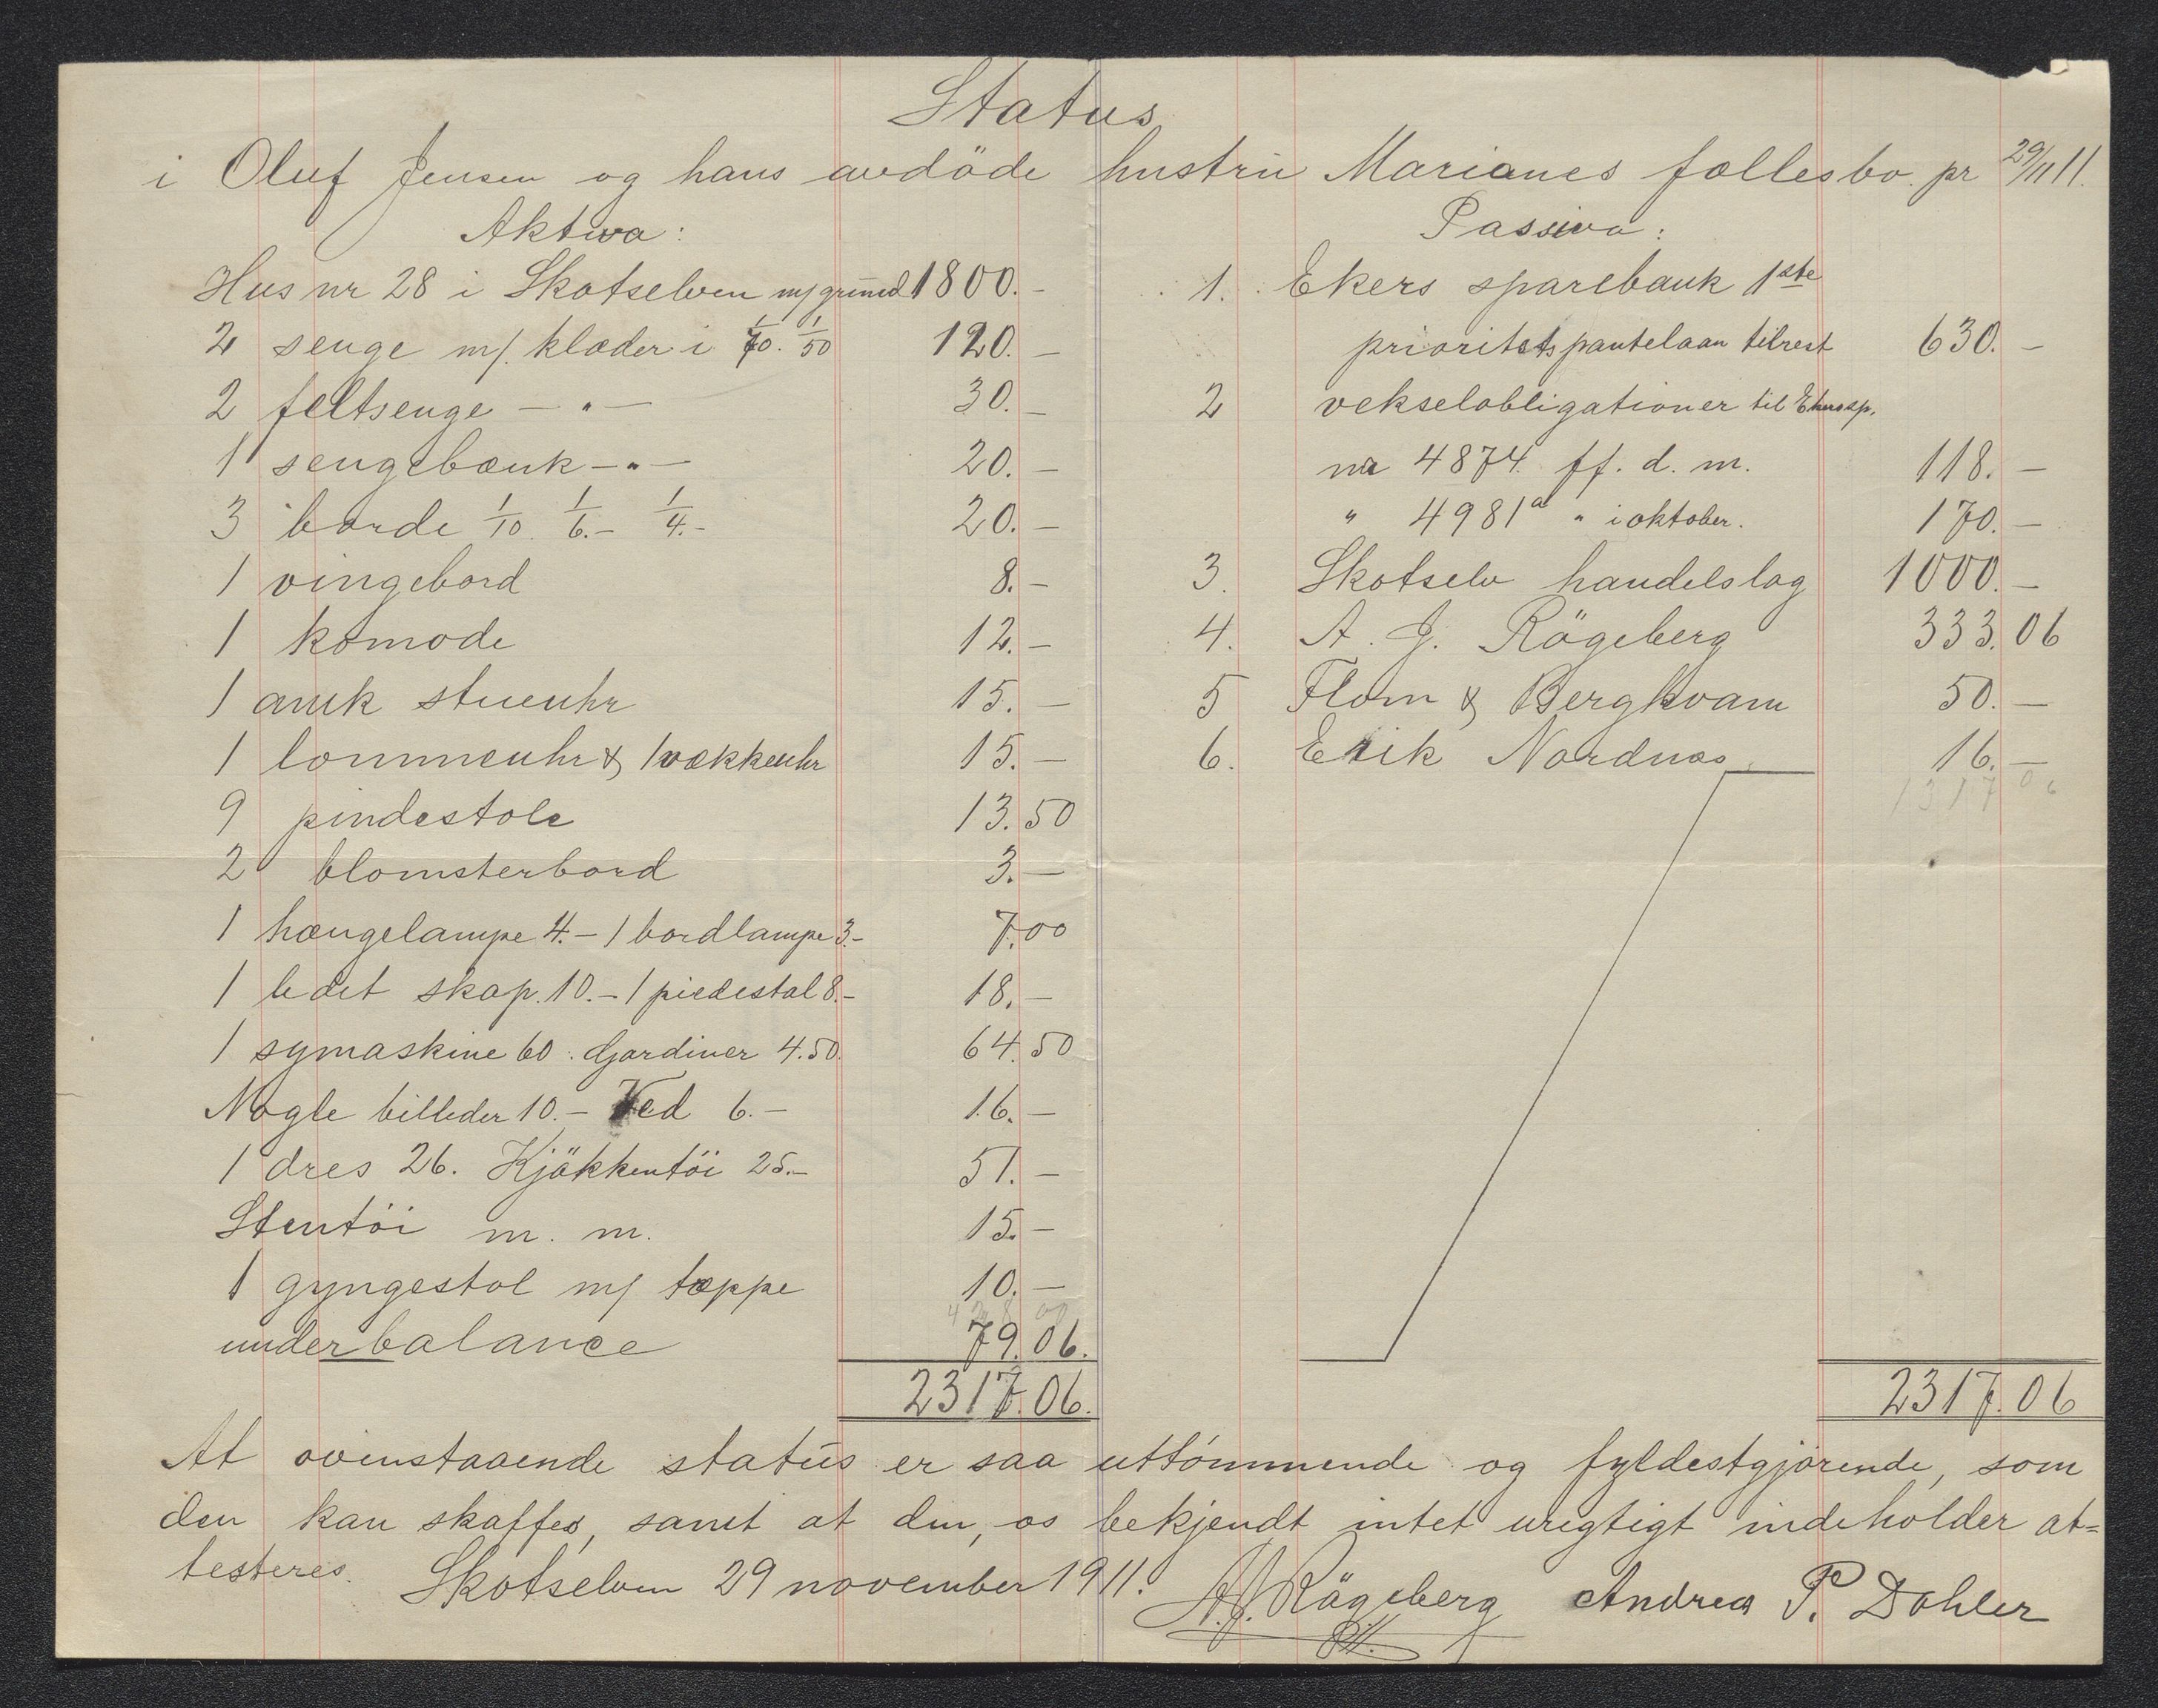 Status
i Oluf Jensen og hans avdöde hustru Marianes fællesbo. pr 29/11 11.
Aktiva:
Hus nr 28 i Skotselven m/grund 1800.-
2 senge m/. klæder i 1/70. 1/50 120.-
2 feltsenge - " - 30.-
1 sengebænk - " - 20.-
3 borde 1/10. 1/6.- 1/4.- 20.-
1 vingebord 8.-
1 komode 12.-
1 amk stueuhr 15.-
1 lommeuhr & 1 vækkeuhr 15.-
9 pindestole 13.50
2 blomsterbord 3.-
1 hængelampe 4.- 1 bordlampe 3.- 7.00
1 lidet skap. 10.- 1 piedestal 8.- 18.-
1 symaskine 60. Gardiner 4.50. 64.50
Nogle billeder 10.- Ved 6.- 16.-
1 dres 26. Kjökkentöi 25.- 51.-
Stentöi m. m. 15.-
1 gyngestol m/ tæppe 10.-
underbalance 79.06.
2317.06.
Passiva:
1. Ekers sparebank 1ste
prioritets pantelaan tilrest 630.-
2 vekselobligationer til Ekers sp.
nr 4874. ff. d. m. 118.-
" 4981a " i oktober. 170.-
3. Skotselv handelslag 1000.-
4. A. J. Rögeberg 333.06
5 Flom & Bergkvam 50.-
6. Erik Nordnæs 16.-
1317 06
2317.06
At ovenstaaende status er saa uttömmende og fyldestgjörende, som
den kan skaffes, samt at den, os bekjendt intet urigtigt indeholder at=
testeres. Skotselven 29 november 1911.
A.J. Rögeberg Andreas P. Dahler